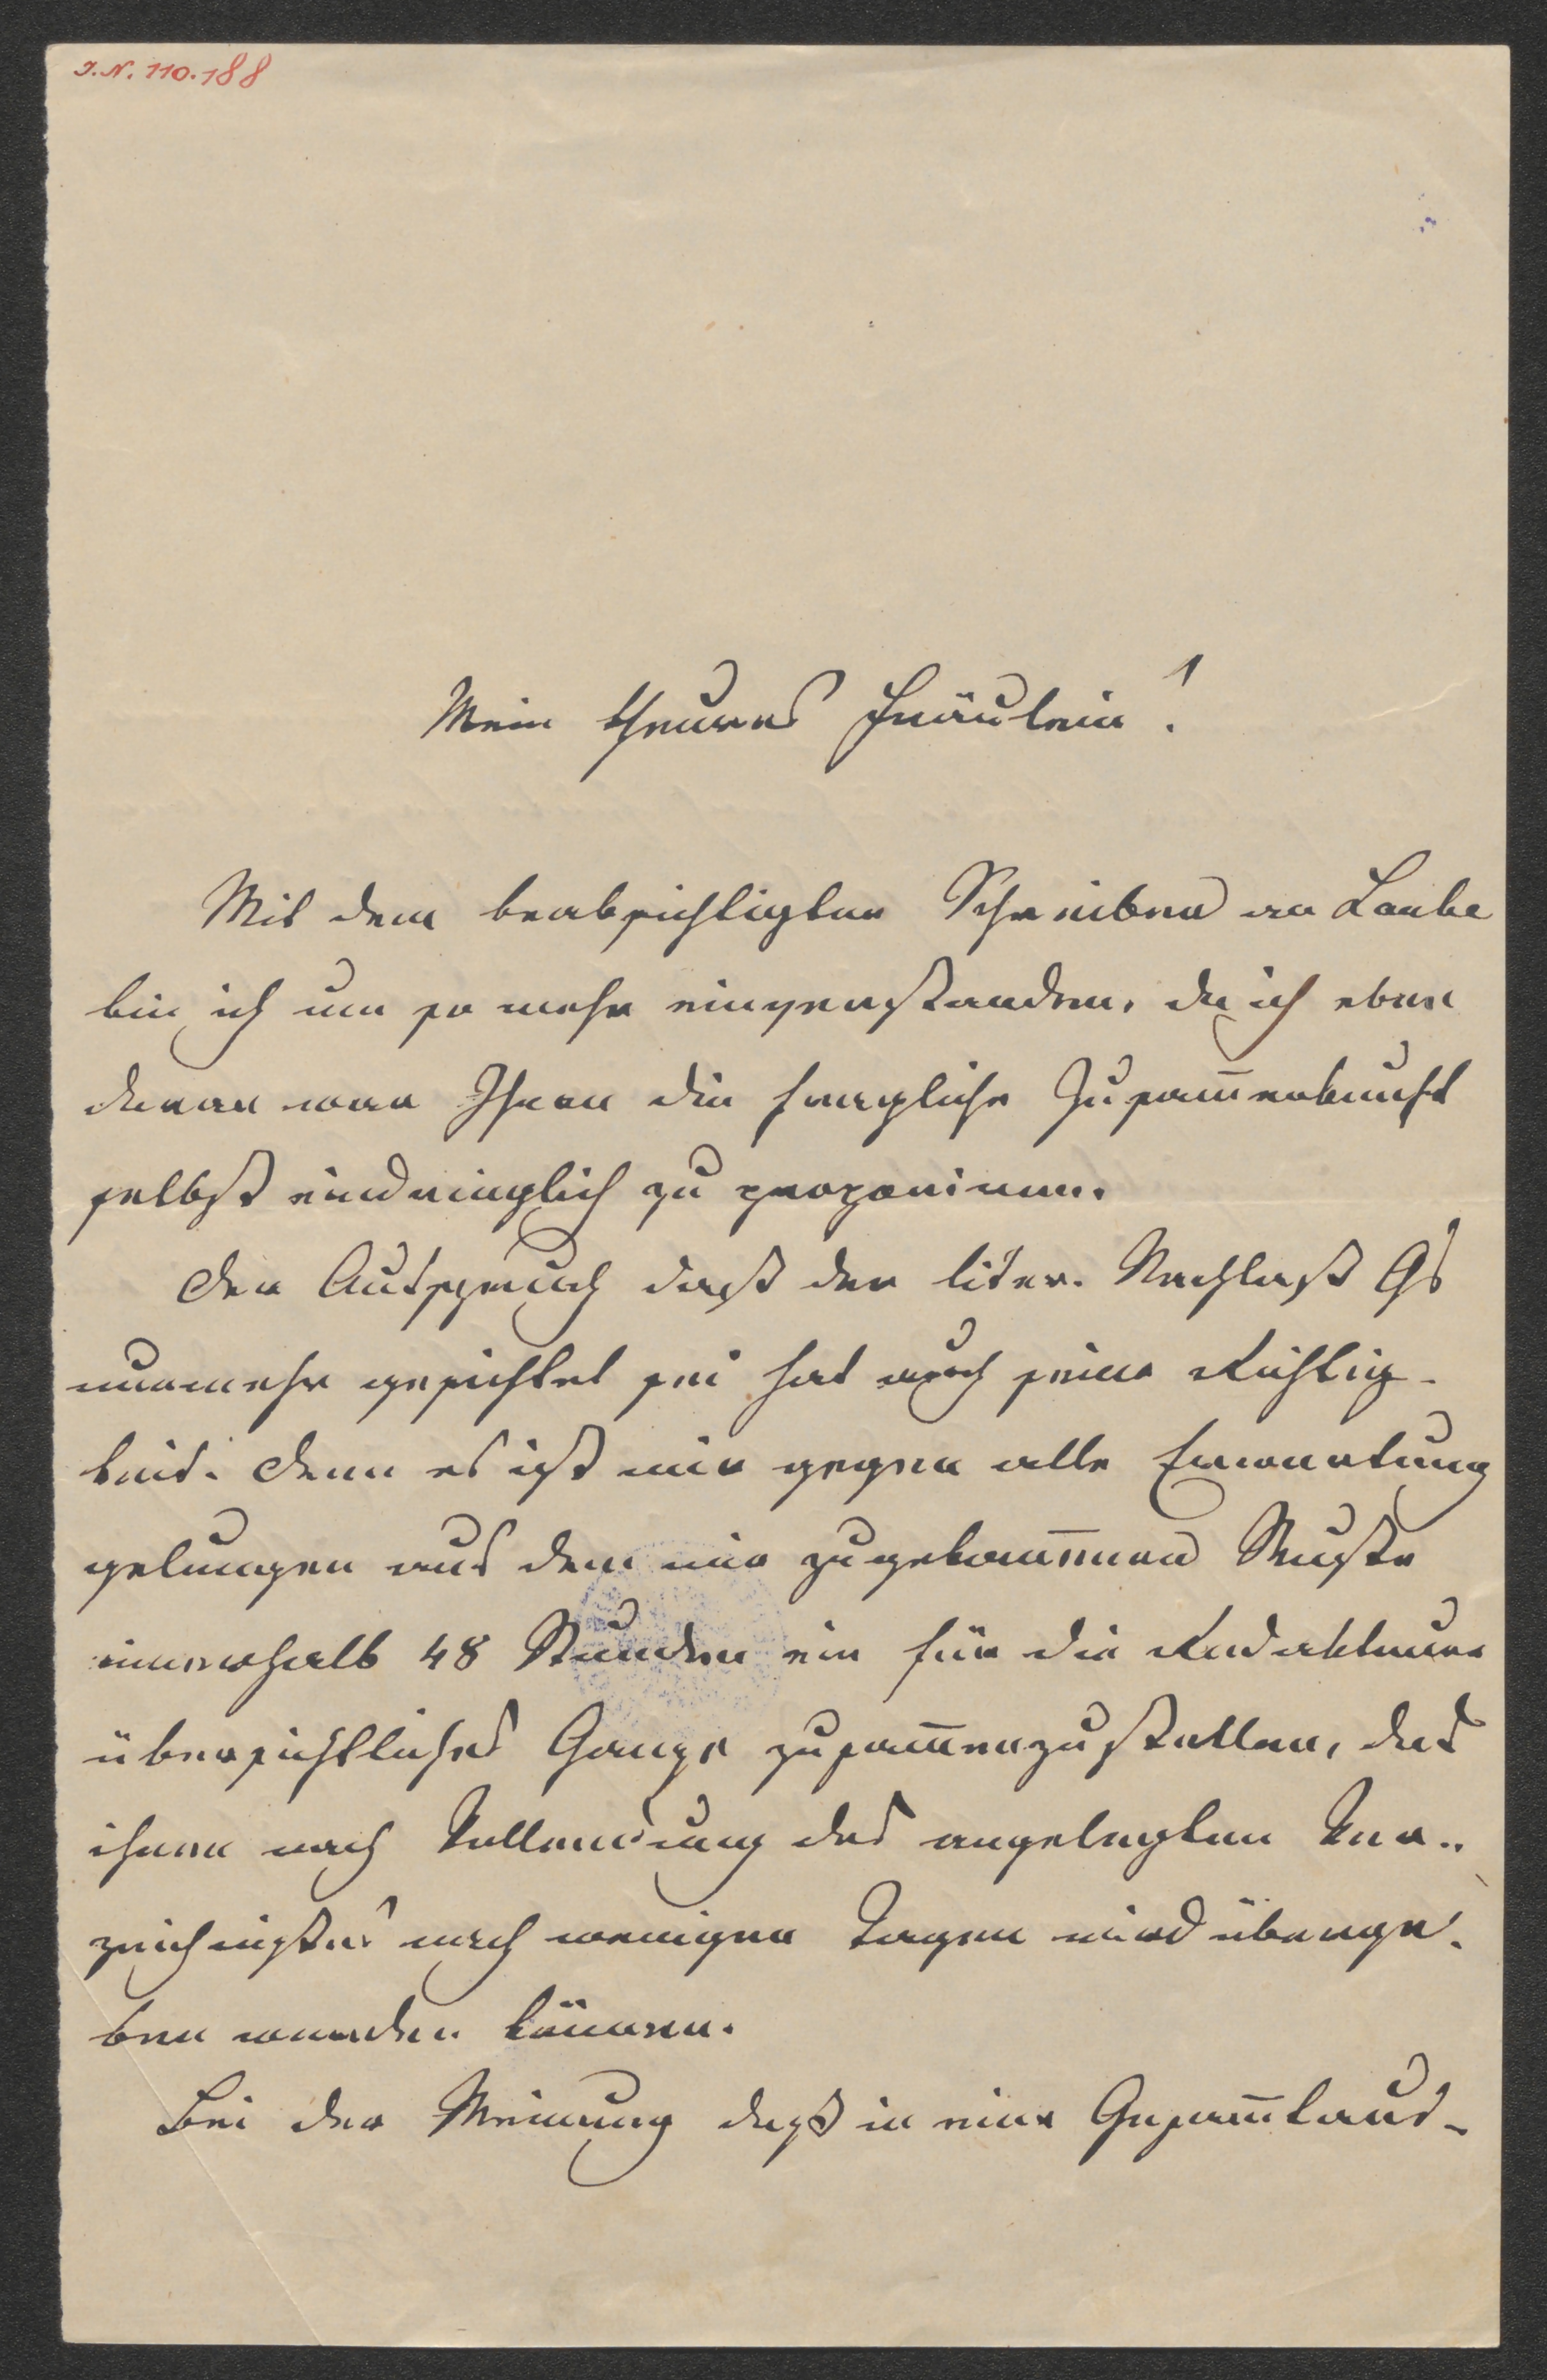 J.N. 110.188
Mein theures Fräulein!
Mit dem beabsichtigten Schreiben an Laube
bin ich um so mehr einverstanden, da ich eben
daran war Ihnen die fragliche Zusam̅enkunft
selbst eindringlich zu proponiren.
Der Ausspruch daß der liter. Nachlaß Gs
nunmehr gesichtet sei hat auch seine Richtig-
keit. Denn es ist mir gegen alle Erwartung
gelungen aus dem mir zugekom̅enen Wuste
innerhalb 48 Stunden ein für die Redakteure
übersichtliches Ganze zusam̅enzustellen, das
ihnen nach Vollendung des angelegten Ver-
zeichnißes nach wenigen Tagen wird überge-
ben werden können.
Bei der Meinung daß in eine Gesam̅taus-